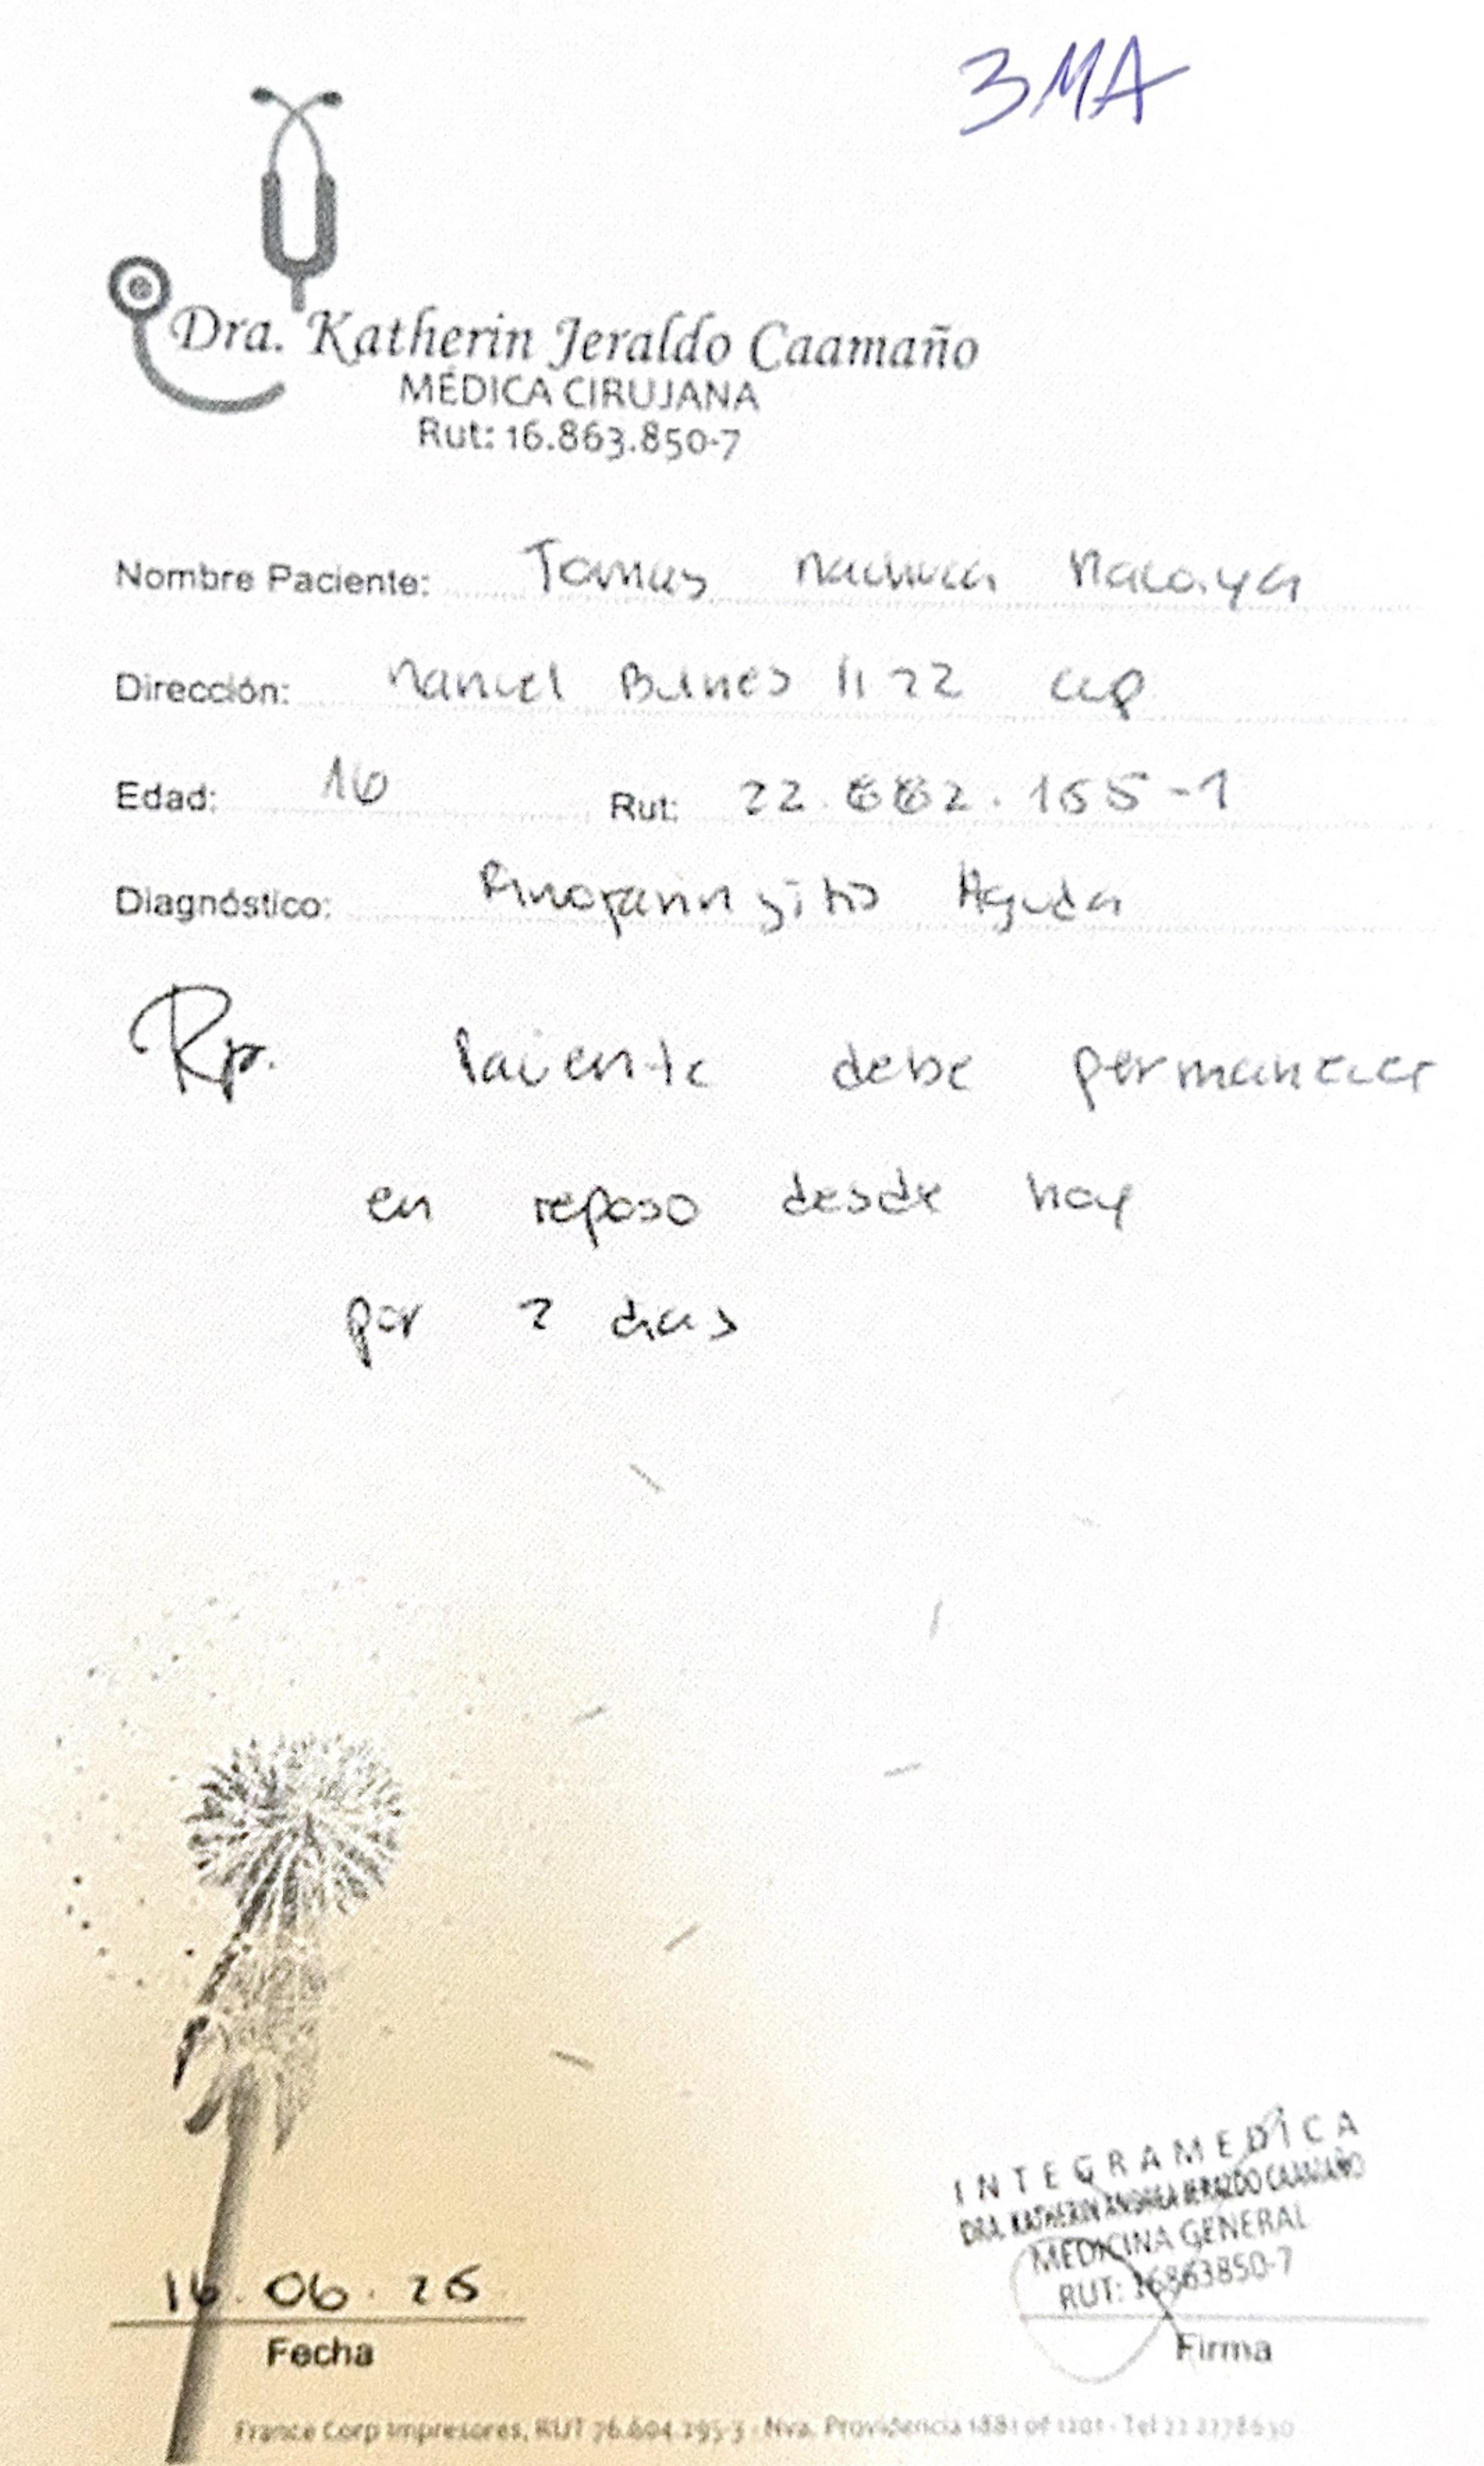 3MA
Dra. Katherin Jeraldo Caamaño
MÉDICA CIRUJANA
Rut: 16.863.850-7
Nombre Paciente: Tomas
Dirección: Manuel Bulnes 1122
Edad: 16 Rut: 22.682.165-1
Diagnóstico: Rinofaringitis Aguda
Rp. Paciente debe permanecer
en reposo desde hoy
por 2 dias
INTEGRAMEDICA
DRA. KATHERIN ANDREA JERALDO CAAMAÑO
MEDICINA GENERAL
RUT: 16863850-7
16.06.25
Fecha
Firma
France Corp Impresores, RUT 76.604.295-3 - Nva. Providencia 1881 of 1201 - Tel